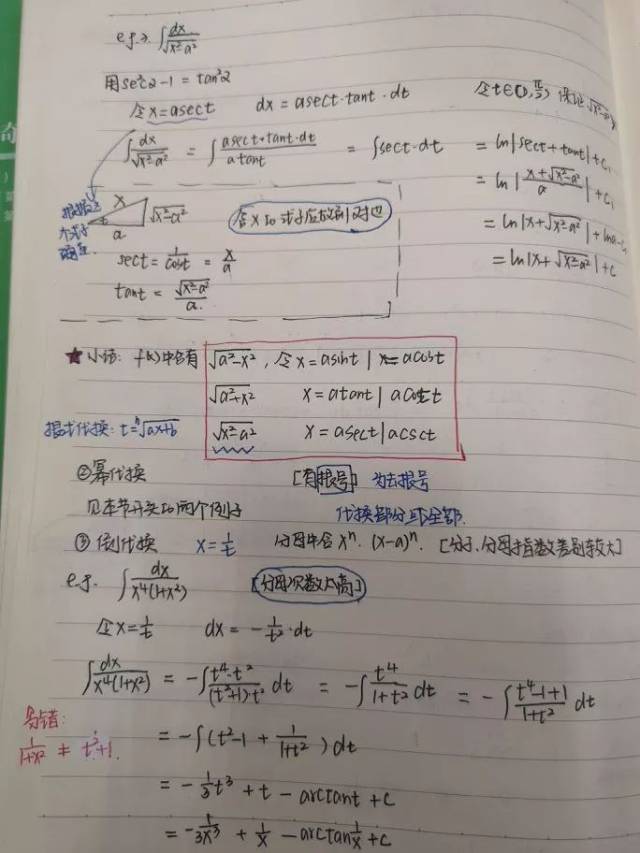 e.g.2. ∫dx/√(x²-a²)
用sec²2-1 = tan²2
令x=asect dx = asect·tant·dt 令t∈(0,π/2) 保证
∫dx/√(x²-a²) = ∫asect·tant·dt/atant = ∫sect·dt = ln|sect+tant|+C₁
= ln|(x+√(x²-a²))/a|+C₁
= ln|x+√(x²-a²)|+lna-C₁
= ln|x+√(x²-a²)|+C
x √(x²-a²) a
sect = 1/cost = x/a
tant = √(x²-a²)/a
★小结: f(x)中含有 √(a²-x²), 令x=asint | x=acost
√(a²+x²) x=atant | acott
根式代换: t=ⁿ√(ax+b) √(x²-a²) x=asect|acsct
②幂代换 [有根号] 为去根号
见本节开头的两个例子 代换部分或全部.
③倒代换 x=1/t 分母中含xⁿ. (x-a)ⁿ. [分子、分母指数差别较大]
e.g. ∫dx/(x⁴(1+x²)) [分母次数太高]
令x=1/t dx = -1/t²·dt
∫dx/(x⁴(1+x²)) = -∫t⁴·t²/((t²+1)·t²) dt = -∫t⁴/(1+t²) dt = -∫(t⁴-1+1)/(1+t²) dt
易错:
1/(1+x²) ≠ t²+1.
= -∫(t²-1+1/(1+t²))dt
= -1/3t³+t-arctant+C
= -1/3x³+1/x-arctan1/x+C